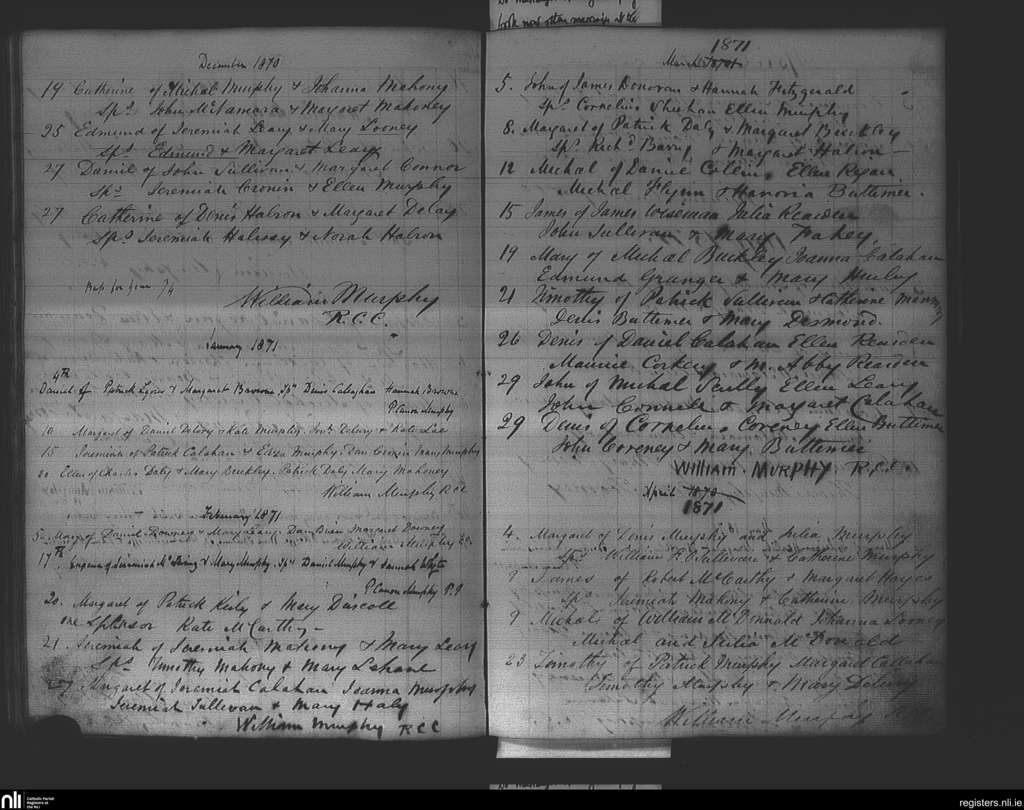 December 1870
19 Catherine of Michal Murphy & Johanna Mahony
Sps. John McNamara & Margret Mahoney
25 Edmund of Jeremiah Leary & Mary Looney
Sps. Edmund & Margaret Leary
27 Daniel of John Sullivan & Margaret Connor
Sps. Jeremiah Cronin & Ellen Murphy
27 Catherine of Denis Halron & Margaret Delay
Sps. Jeremiah & Norah Halron
Bap. for year 74
William Murphy
R.C.C.
January 1871
4th
Daniel of Patrick Lyons & Margaret Browne Sps. Denis Callaghan Hannah Browne
P Canon Murphy
10 Margaret of Daniel & Kate Murphy & Kate Lee
15 Jeremiah of Patrick Calahan & Eliza Murphy Cronin Mary Murphy
Ellen of Charles Daly & Mary Buckley Patrick Daly Mary Mahoney
William Murphy RCC
February 1871
5 Mary of Daniel Downey & Mary Leary Dan Brien Margaret Downey
William Murphy
17th Eugene of Jeremiah & Mary Murphy Sps. Daniel Murphy & Hannah
P Canon Murphy P.P
20. Margaret of Patrick Kiely & Mary Driscoll
one Sponsor Kate McCarthy
21 Jeremiah of Jeremiah Mahony & Mary Leary
Sps. Timothy Mahony & Mary Lehane
27 Margaret of Jeremiah Calahan Joanna Murphy
Jeremiah Sullivan & Mary Haly
William Murphy RCC
took
1871
March
5. John of James Donovan & Hannah Fitzgerald
Sps. Cornelius Sheehan Ellen Murphy
8. Margaret of Patrick Daly & Margaret Buckley
Sps. Richd Barry & Margaret Halron
12 Michal of Daniel Collins Ellen Regan
Michal Flynn & Hanoria Buttimer.
15 James of James Wiseman Julia Rearden
John Sullivan & Mary Fahey
19 Mary of Michal Buckley Joanna Calahan
Edmund Granger & Mary Hurley
21 Timothy of Patrick Sullivan & Catherine Murphy
Denis Buttimer & Mary Desmond.
26 Denis of Daniel Calahan Ellen Rearden
Maurice Corkery & M. Abby Rearden
29 John of Michal Scully Ellen Leary
John Connell & Margaret Calahan
29 Denis of Cornelius Coveney Ellen Buttimer
John Coveney & Mary Buttimer
WILLIAM MURPHY R.C.C.
April 1870
1871
4. Margaret of Denis Murphy and Julia Murphy
Sps. William O'Sullivan & Catherine Murphy
9 James of Robert McCarthy & Margaret Hayes
Sps. Jeremiah Mahony & Catherine Murphy
9 Michal of William McDonnald Johanna Looney
Michal and Julia McDonald
23 Timothy of Patrick Murphy Margaret Callahan
Timothy Murphy & Mary
William Murphy
nli
Catholic Parish
Registers at
the NLI
registers.nli.ie